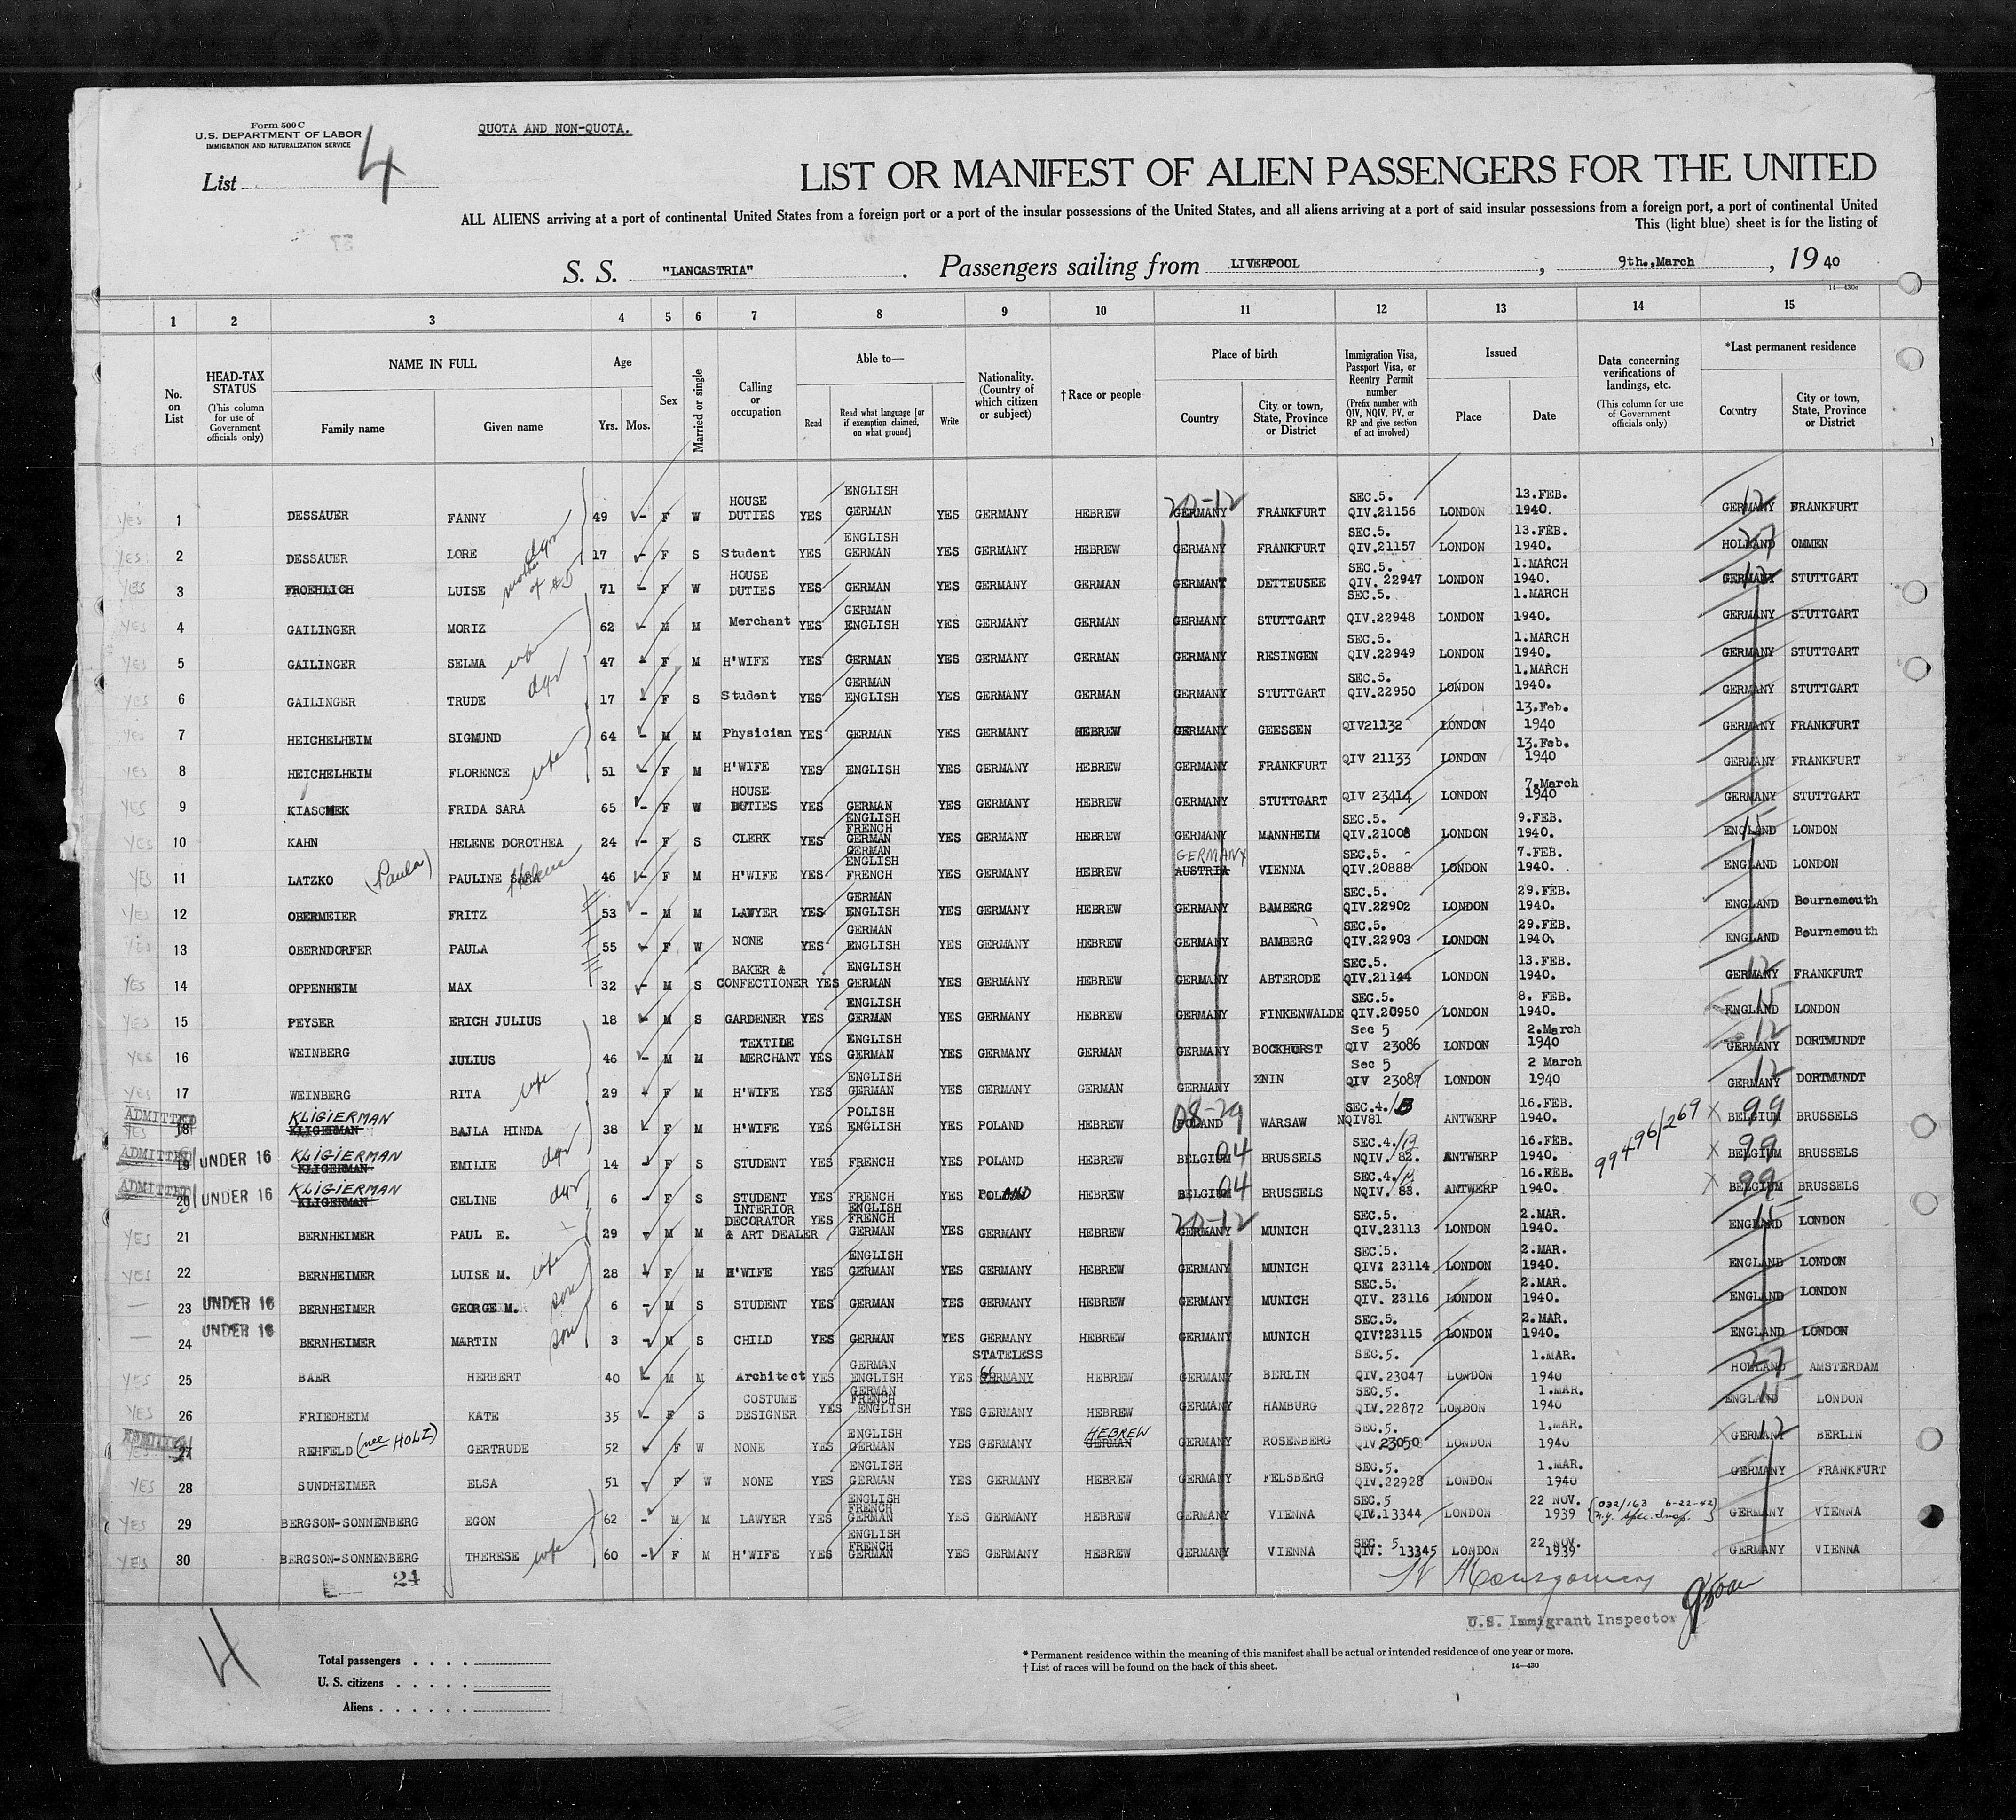 Form 500 C
U.S. DEPARTMENT OF LABOR
IMMIGRATION AND NATURALIZATION SERVICE
QUOTA AND NON-QUOTA.
List 4
LIST OR MANIFEST OF ALIEN PASSENGERS FOR THE UNITED
ALL ALIENS arriving at a port of continental United States from a foreign port or a port of the insular possessions of the United States, and all aliens arriving at a port of said insular possessions from a foreign port, a port of continental United
This (light blue) sheet is for the listing of
S. S. "LANCASTRIA" . Passengers sailing from LIVERPOOL , 9th.,March , 19 40
14—430c
1 2 3 4 5 6 7 8 9 10 11 12 13 14 15
No. on List
HEAD-TAX STATUS (This column for use of Government officials only)
NAME IN FULL
Family name Given name
Age Yrs. Mos.
Sex
Married or single
Calling or occupation
Able to— Read Read what language [or if exemption claimed, on what ground] Write
Nationality. (Country of which citizen or subject)
†Race or people
Place of birth
Country City or town, State, Province or District
Immigration Visa, Passport Visa, or Reentry Permit number (Prefix number with QIV, NQIV, PV, or RP and give section of act involved)
Issued Place Date
Data concerning verifications of landings, etc. (This column for use of Government officials only)
*Last permanent residence
Country City or town, State, Province or District
YES 1 DESSAUER FANNY 49 - F W HOUSE DUTIES YES ENGLISH GERMAN YES GERMANY HEBREW GERMANY FRANKFURT SEC.5. QIV.21156 LONDON 13.FEB. 1940. GERMANY 12 FRANKFURT
YES 2 DESSAUER LORE dgr 17 - F S Student YES ENGLISH GERMAN YES GERMANY HEBREW GERMANY FRANKFURT SEC.5. QIV.21157 LONDON 13.FEB. 1940. HOLLAND 27 OMMEN
YES 3 FROEHLICH LUISE mother of #5 71 - F W HOUSE DUTIES YES GERMAN YES GERMANY GERMAN GERMANY DETTEUSEE SEC.5. QIV. 22947 LONDON 1.MARCH 1940. GERMANY 12 STUTTGART
YES 4 GAILINGER MORIZ 62 - M M Merchant YES GERMAN ENGLISH YES GERMANY GERMAN GERMANY STUTTGART SEC.5. QIV.22948 LONDON 1.MARCH 1940. GERMANY STUTTGART
YES 5 GAILINGER SELMA wife 47 - F M H'WIFE YES GERMAN YES GERMANY GERMAN GERMANY RESINGEN SEC.5. QIV.22949 LONDON 1.MARCH 1940. GERMANY STUTTGART
YES 6 GAILINGER TRUDE dgr 17 - F S Student YES GERMAN ENGLISH YES GERMANY GERMAN GERMANY STUTTGART SEC.5. QIV.22950 LONDON 1.MARCH 1940. GERMANY STUTTGART
YES 7 HEICHELHEIM SIGMUND 64 - M M Physician YES GERMAN YES GERMANY HEBREW GERMANY GEESSEN QIV21132 LONDON 13.Feb. 1940 GERMANY FRANKFURT
YES 8 HEICHELHEIM FLORENCE wife 51 - F M H'WIFE YES ENGLISH YES GERMANY HEBREW GERMANY FRANKFURT QIV 21133 LONDON 13.Feb. 1940 GERMANY FRANKFURT
YES 9 KIASCHEK FRIDA SARA 65 - F W HOUSE DUTIES YES GERMAN YES GERMANY HEBREW GERMANY STUTTGART QIV 23414 LONDON 7.March 1940 GERMANY STUTTGART
YES 10 KAHN HELENE DOROTHEA 24 - F S CLERK YES ENGLISH FRENCH GERMAN YES GERMANY HEBREW GERMANY MANNHEIM SEC.5. QIV.21008 LONDON 9.FEB. 1940. ENGLAND 15 LONDON
YES 11 LATZKO (Paula) PAULINE SARA Helene 46 - F M H'WIFE YES GERMAN ENGLISH FRENCH YES GERMANY HEBREW GERMANY AUSTRIA VIENNA SEC.5. QIV.20888 LONDON 7.FEB. 1940. ENGLAND LONDON
YES 12 OBERMEIER FRITZ 53 - M M LAWYER YES GERMAN ENGLISH YES GERMANY HEBREW GERMANY BAMBERG SEC.5. QIV.22902 LONDON 29.FEB. 1940. ENGLAND Bournemouth
YES 13 OBERNDORFER PAULA 55 - F W NONE YES GERMAN ENGLISH YES GERMANY HEBREW GERMANY BAMBERG SEC.5. QIV.22903 LONDON 29.FEB. 1940. ENGLAND Bournemouth
YES 14 OPPENHEIM MAX 32 - M S BAKER & CONFECTIONER YES ENGLISH GERMAN YES GERMANY HEBREW GERMANY ABTERODE SEC.5. QIV.21144 LONDON 13.FEB. 1940. GERMANY 12 FRANKFURT
YES 15 PEYSER ERICH JULIUS 18 - M S GARDENER YES ENGLISH GERMAN YES GERMANY HEBREW GERMANY FINKENWALDE SEC.5. QIV.20950 LONDON 8. FEB. 1940. ENGLAND 15 LONDON
YES 16 WEINBERG JULIUS 46 - M M TEXTILE MERCHANT YES ENGLISH GERMAN YES GERMANY GERMAN GERMANY BOCKHORST Sec 5 QIV 23086 LONDON 2.March 1940 GERMANY 12 DORTMUNDT
YES 17 WEINBERG RITA wife 29 - F M H'WIFE YES ENGLISH GERMAN YES GERMANY GERMAN GERMANY ZNIN Sec 5 QIV 23087 LONDON 2 March 1940 GERMANY 12 DORTMUNDT
ADMITTED YES 18 KLIGIERMAN KLIGERMAN BAJLA HINDA 38 - F M H'WIFE YES POLISH ENGLISH YES POLAND HEBREW POLAND 08-29 WARSAW SEC.4./B NQIV81 ANTWERP 16.FEB. 1940. 99496/269 X BELGIUM 99 BRUSSELS
ADMITTED 19 UNDER 16 KLIGIERMAN KLIGERMAN EMILIE dgr 14 - F S STUDENT YES FRENCH YES POLAND HEBREW BELGIUM 04 BRUSSELS SEC.4./B NQIV. 82. ANTWERP 16.FEB. 1940. X BELGIUM 99 BRUSSELS
ADMITTED 20 UNDER 16 KLIGIERMAN KLIGERMAN CELINE dgr 6 - F S STUDENT YES FRENCH YES POLAND HEBREW BELGIUM 04 BRUSSELS SEC.4./B NQIV. 83. ANTWERP 16.FEB. 1940. X BELGIUM 99 BRUSSELS
YES 21 BERNHEIMER PAUL E. 29 - M M INTERIOR DECORATOR & ART DEALER YES ENGLISH FRENCH GERMAN YES GERMANY HEBREW GERMANY MUNICH SEC.5. QIV.23113 LONDON 2.MAR. 1940. ENGLAND 15 LONDON
YES 22 BERNHEIMER LUISE M. wife 28 - F M H'WIFE YES ENGLISH GERMAN YES GERMANY HEBREW GERMANY MUNICH SEC.5. QIV. 23114 LONDON 2.MAR. 1940. ENGLAND LONDON
— 23 UNDER 16 BERNHEIMER GEORGE M. son 6 - M S STUDENT YES GERMAN YES GERMANY HEBREW GERMANY MUNICH SEC.5. QIV. 23116 LONDON 2.MAR. 1940. ENGLAND LONDON
— 24 UNDER 16 BERNHEIMER MARTIN son 3 - M S CHILD YES GERMAN YES GERMANY HEBREW GERMANY MUNICH SEC.5. QIV.23115 LONDON 2.MAR. 1940. ENGLAND LONDON
YES 25 BAER HERBERT 40 - M M Architect YES GERMAN ENGLISH YES STATELESS 66 GERMANY HEBREW GERMANY BERLIN SEC.5. QIV.23047 LONDON 1.MAR. 1940 HOLLAND 27 AMSTERDAM
YES 26 FRIEDHEIM KATE 35 - F S COSTUME DESIGNER YES GERMAN FRENCH ENGLISH YES GERMANY HEBREW GERMANY HAMBURG SEC.5. QIV.22872 LONDON 1.MAR. 1940 ENGLAND 15 LONDON
ADMITTED YES 27 REHFELD (nee HOLZ) GERTRUDE 52 - F W NONE YES ENGLISH GERMAN YES GERMANY HEBREW GERMAN GERMANY ROSENBERG SEC.5. QIV 23050 LONDON 1.MAR. 1940 X GERMANY 12 BERLIN
YES 28 SUNDHEIMER ELSA 51 - F W NONE YES ENGLISH GERMAN YES GERMANY HEBREW GERMANY FELSBERG SEC.5. QIV.22928 LONDON 1.MAR. 1940 GERMANY FRANKFURT
YES 29 BERGSON-SONNENBERG EGON 62 - M M LAWYER YES ENGLISH FRENCH GERMAN YES GERMANY HEBREW GERMANY VIENNA SEC.5 QIV.13344 LONDON 22 NOV. 1939 032/163 6-22-42 N.Y. Spec. Insp. GERMANY VIENNA
YES 30 BERGSON-SONNENBERG THERESE wife 60 - F M H'WIFE YES ENGLISH FRENCH GERMAN YES GERMANY HEBREW GERMANY VIENNA SEC. 5 QIV. 13345 LONDON 22 NOV. 1939 GERMANY VIENNA
24
Montgomery
U.S. Immigrant Inspector
4
Total passengers . . . .
U. S. citizens . . . . .
Aliens . . . . . .
* Permanent residence within the meaning of this manifest shall be actual or intended residence of one year or more.
† List of races will be found on the back of this sheet.
14—430